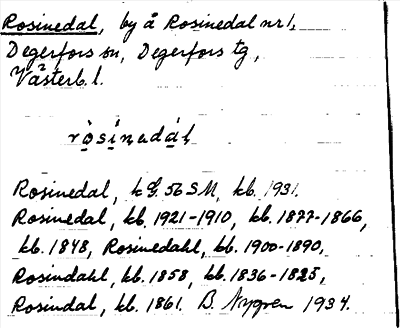 Rosinedal, by å Rosinedal nr 1,
Degerfors sn, Degerfors tg,
Västerb. l.
rò̱sịnedá̱l,
Rosinedal, k G. 56 SM, kb. 1931.
Rosinedal, kb. 1921-1910, kb. 1877-1866,
kb. 1848, Rosinedahl, kb. 1900-1890,
Rosindahl, kb. 1858, kb. 1836-1825,
Rosindal, kb. 1861. B. Nygren 1934.